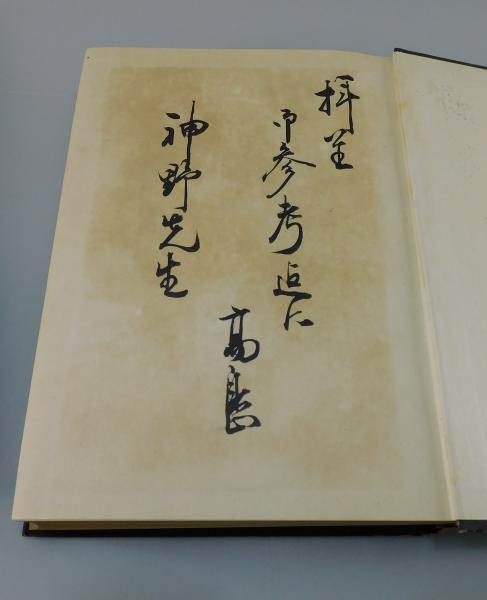 拝呈
御参考迄に
高島
神野先生